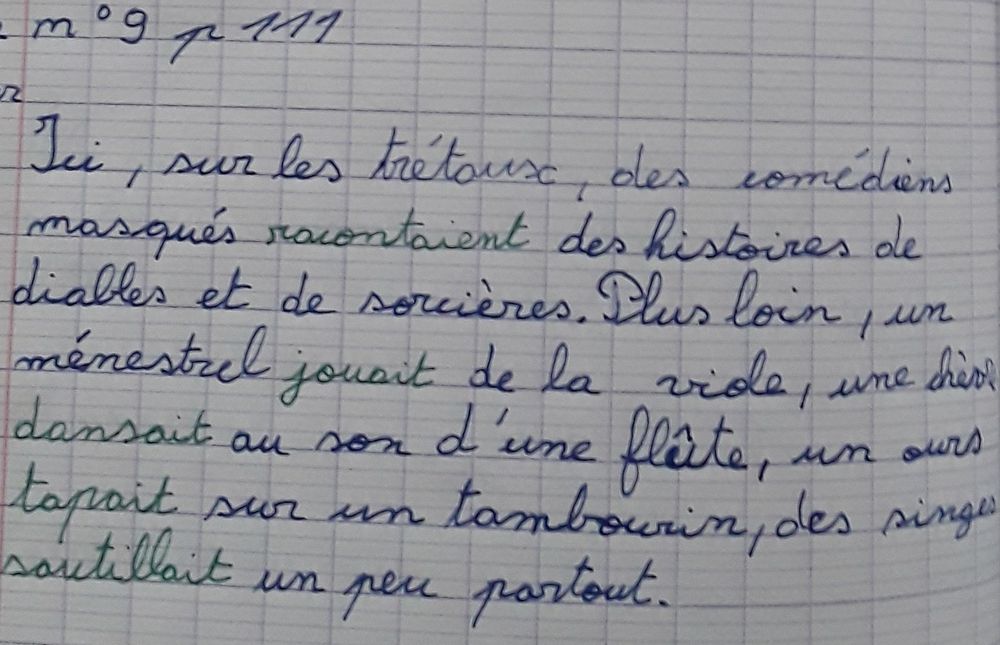 n°9 p 111
Ici, sur les trétaux, des comédiens
masqués racontaient des histoires de
diables et de sorcières. Plus loin, un
ménestrel jouait de la viole, une chèv
dansait au son d'une flûte, un ours
tapait sur un tambourin, des singes
sautillait un peu partout.